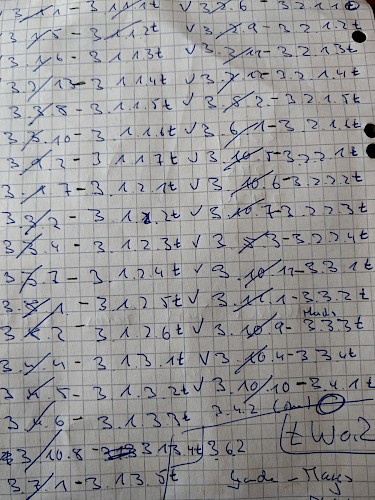 3.1.1 - 3.1.1.1t v 3.2.6 - 3.2.1.1t
3.1.5 - 3.1.1.2t v 3.2.9 - 3.2.1.2t
3.1.6 - 3.1.1.3t v 3.2.11 - 3.2.1.3t
3.2.13 - 3.1.1.4t v 3.2.12 - 3.2.1.4t
3.3.8 - 3.1.1.5t v 3.8.2 - 3.2.1.5t
3.3.10 - 3.1.1.6t v 3.6.1 - 3.2.1.6t
3.9.2 - 3.1.1.7t v 3.10.5 - 3.2.2.1t
3.1.7 - 3.1.2.1t v 3.10.6 - 3.2.2.2t
3.3.2 - 3.1.2.2t v 3.10.7 - 3.2.2.3t
3.3.4 - 3.1.2.3t v 3.8.3 - 3.2.2.4t
3.3.7 - 3.1.2.4t v 3.10.11 - 3.3.1t
3.8.1 - 3.1.2.5t v 3.11.1 - 3.3.2t
3.4.2 - 3.1.2.6t v 3.10.9 - 3.3.3t
3.4.4 - 3.1.3.1t v 3.10.4 - 3.3.4t
3.4.5 - 3.1.3.2t v 3.10.10 - 3.4.1t
3.4.6 - 3.1.3.3t 3.4.2
3.10.8 - 3.1.3.4t 3.6.2
3.7.1 - 3.1.3.5t